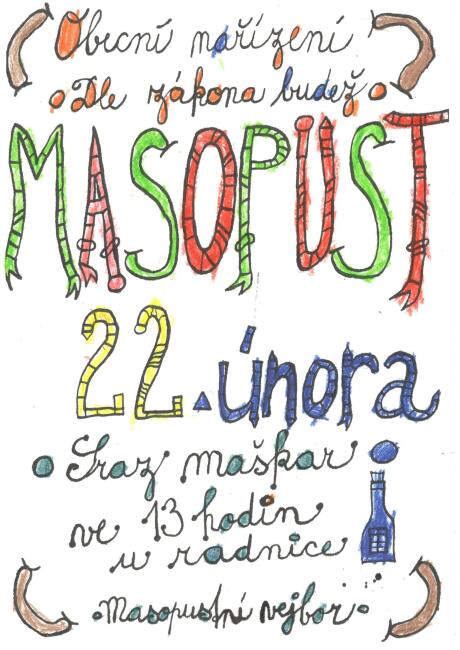 Obecní nařízení
Dle zákona budež
MASOPUST
22. února
Sraz maškar
ve 13 hodin
u radnice
Masopustní vejbor